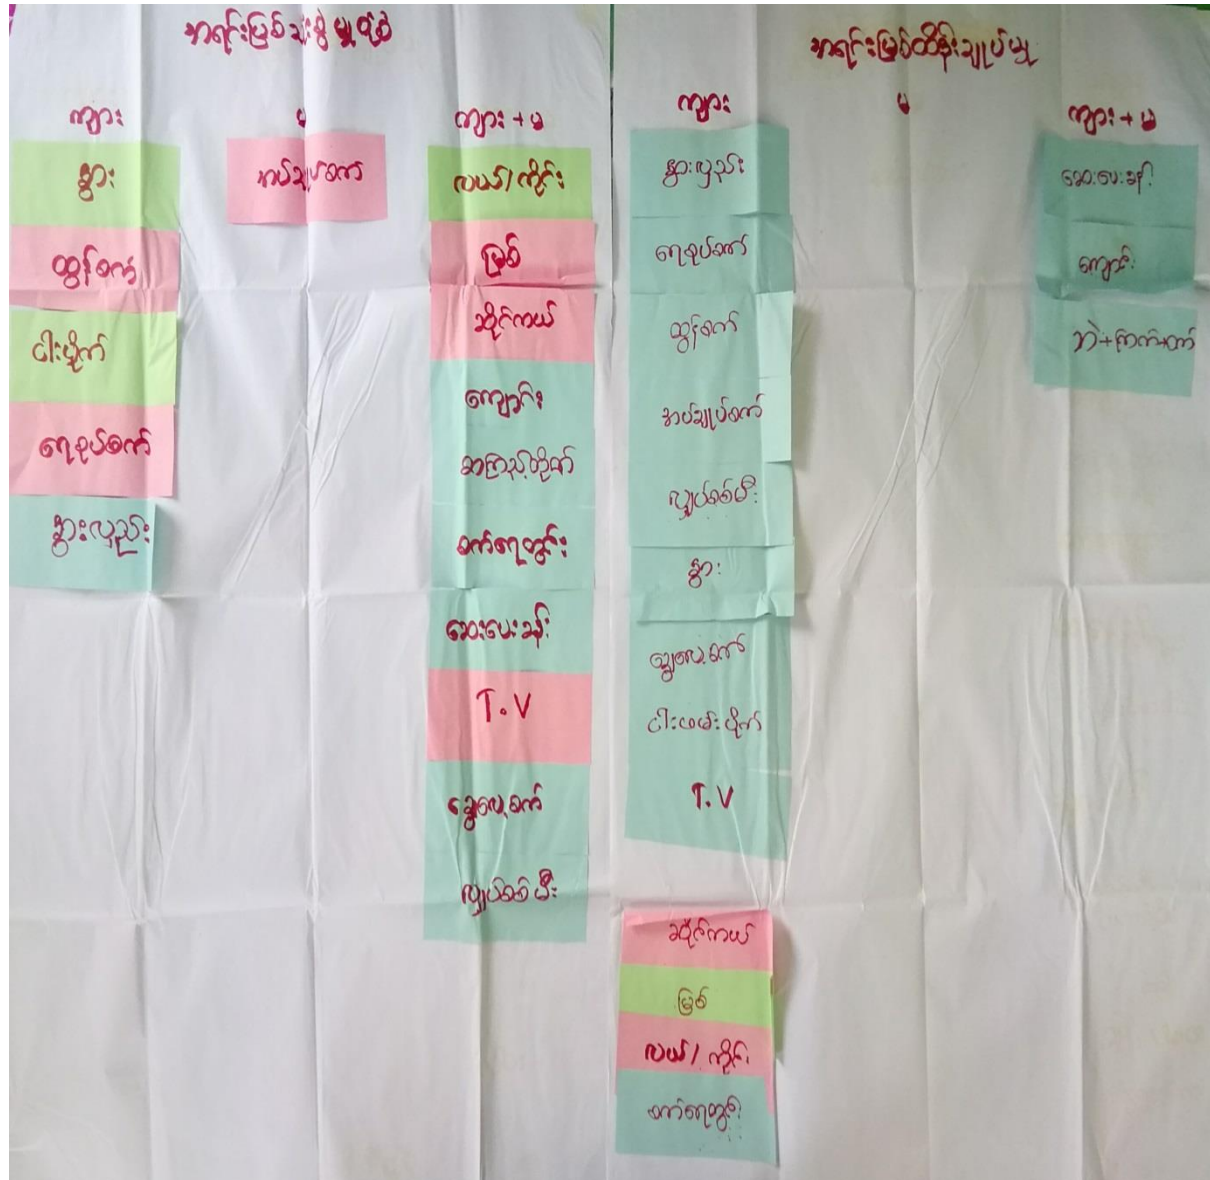 အရင်းမြစ်သုံးစွဲမှုပုံစံ
ကျား
မ
ကျား + မ
နွား
ထွန်စက်
ငါးပိုက်
ရေစုပ်စက်
နွားလှည်း
အပ်ချုပ်စက်
လယ်/ကိုင်း
မြစ်
ဆိုင်ကယ်
ကျောင်း
စာကြည့်တိုက်
စက်ရေတွင်း
ဆေးပေးခန်း
T.V
ခြွေလှေ့စက်
လျှပ်စစ်မီး
အရင်းမြစ်ထိန်းချုပ်မှု
ကျား
မ
ကျား + မ
နွားလှည်း
ရေစုပ်စက်
ထွန်စက်
အပ်ချုပ်စက်
လျှပ်စစ်မီး
နွား
ခြွေလှေ့စက်
ငါးဖမ်းပိုက်
T.V
ဆိုင်ကယ်
မြစ်
လယ်/ကိုင်း
စက်ရေတွင်း
ဆေးပေးခန်း
ကျောင်း
ဘဲ+ကြက်+ဝက်